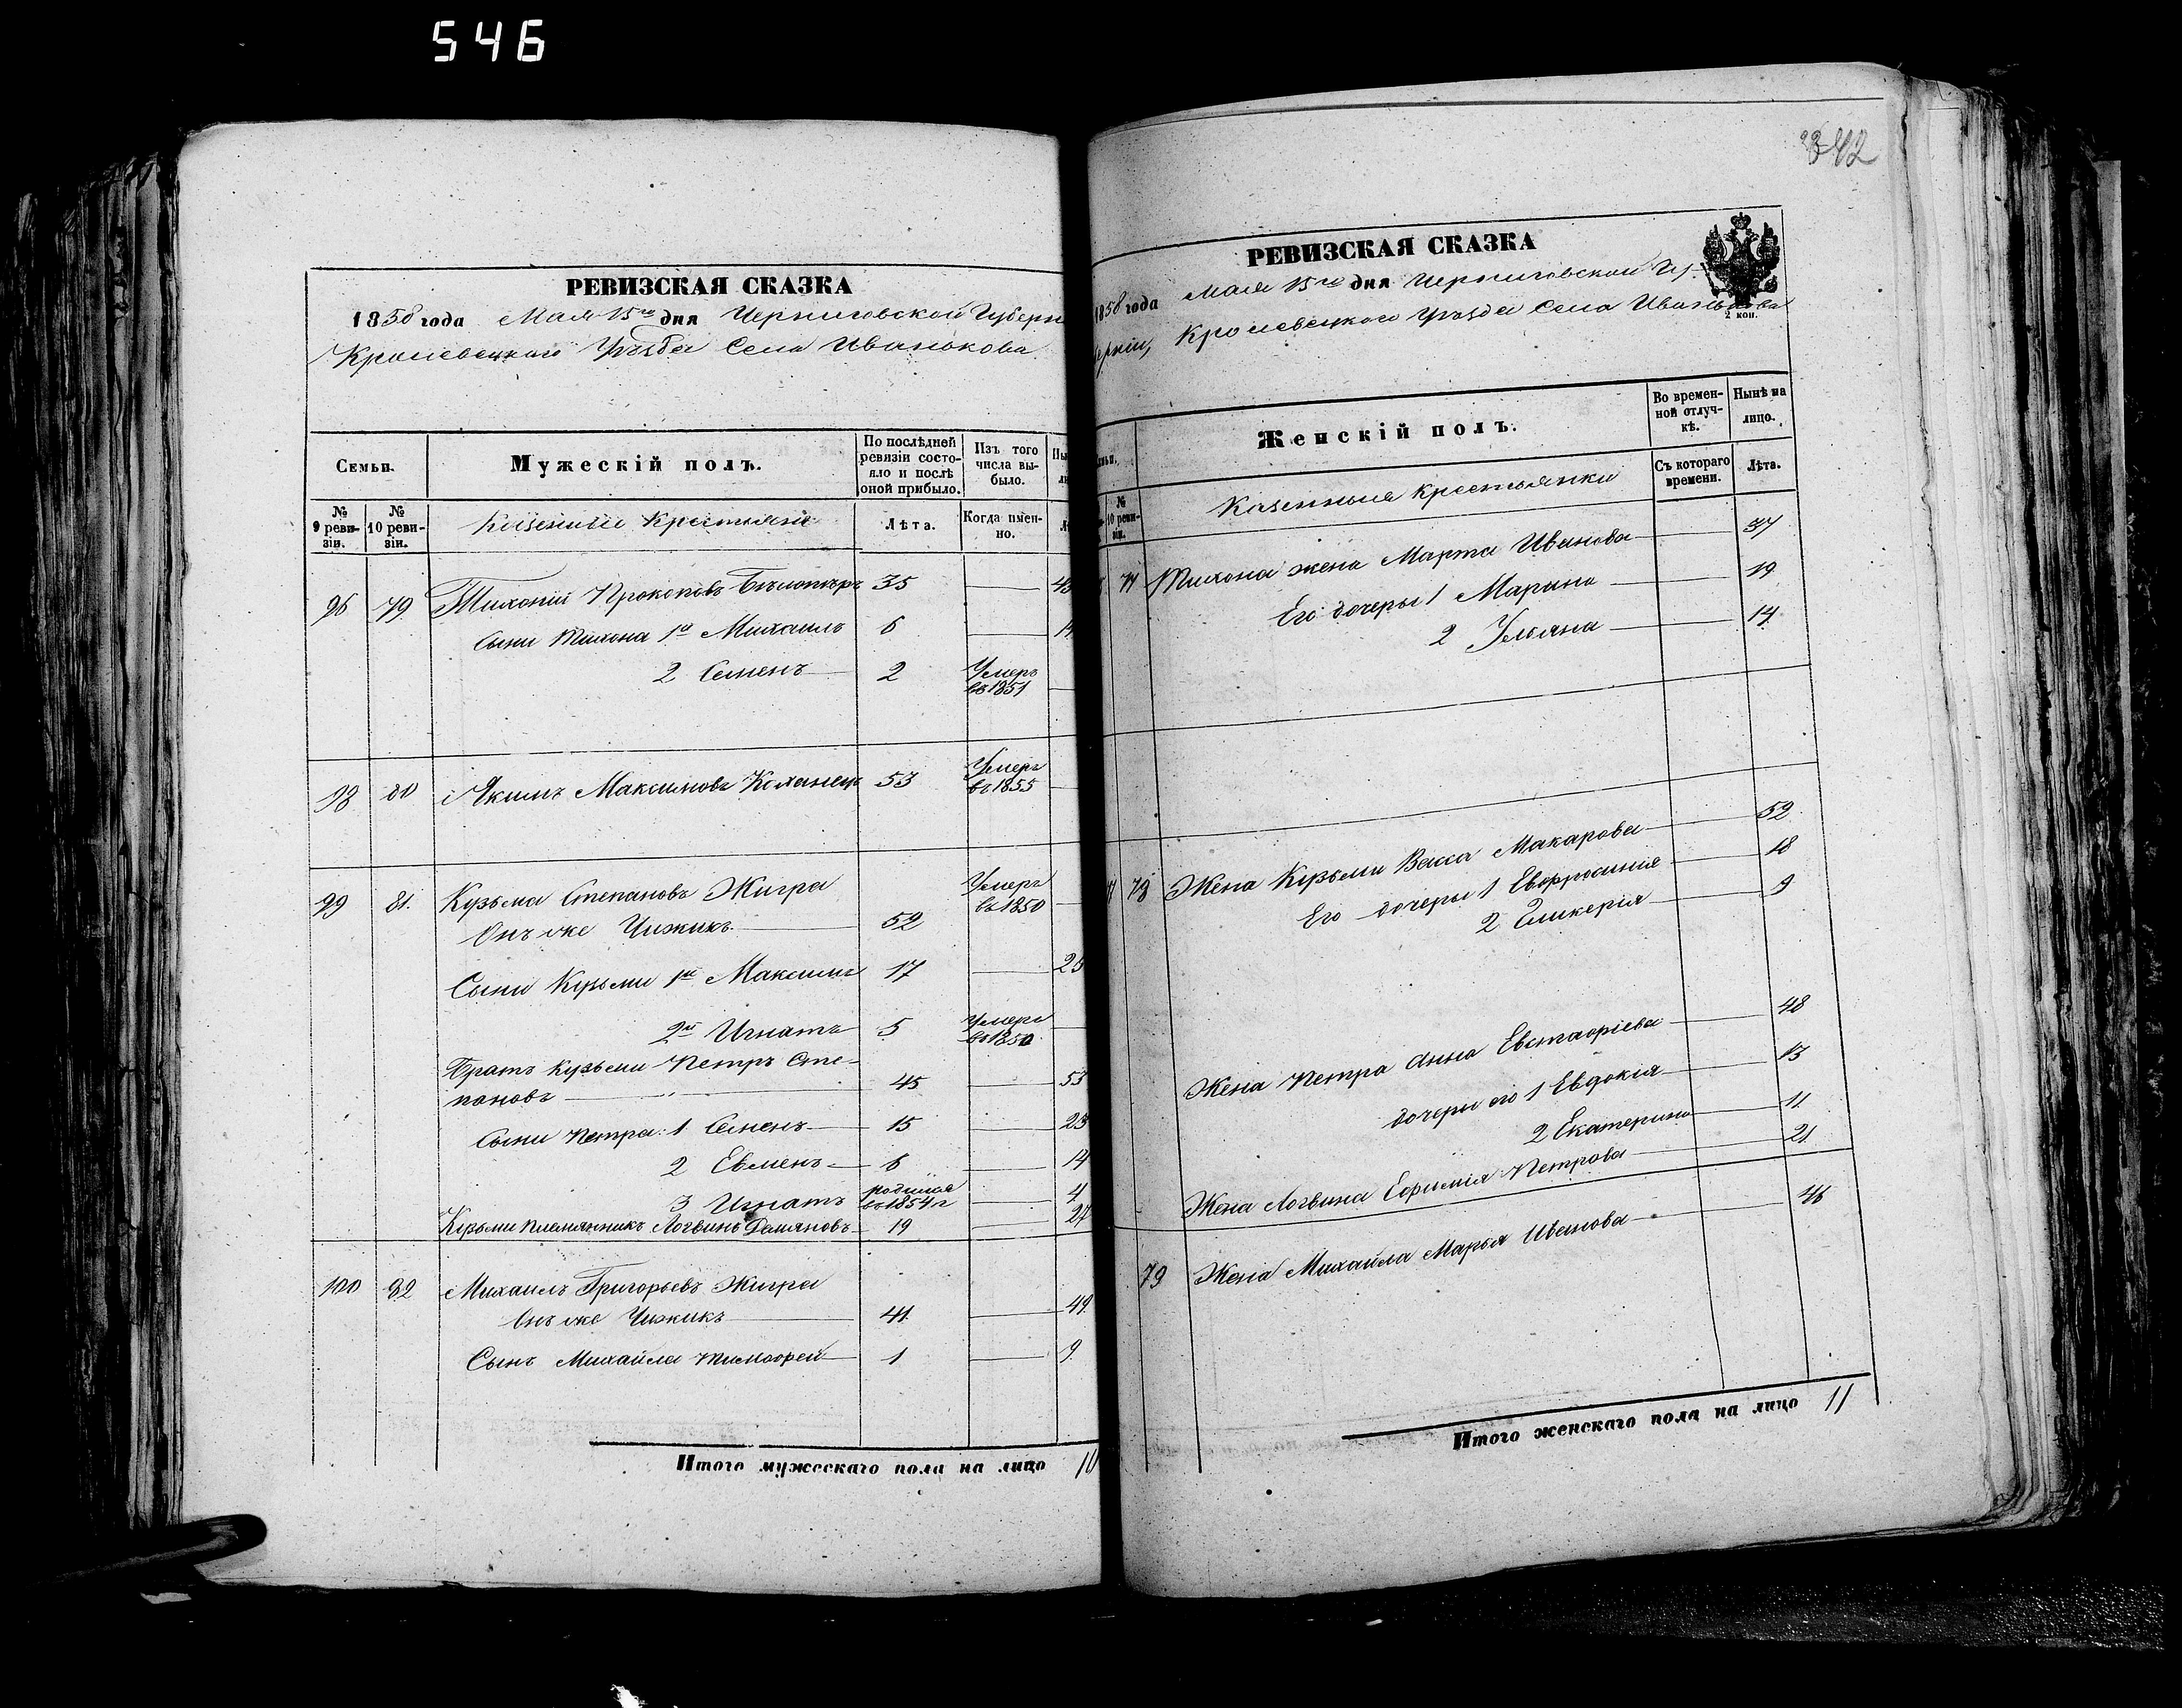 546
РЕВИЗСКАЯ СКАЗКА
1858 года Мая 15го дня Черниговской Губерн
Кролевецкого Уѣзда Села Иванькова
Семьи.
Мужескій полъ.
По послѣдней ревизіи состояло и послѣ оной прибыло.
Изъ того числа выбыло.
№ 9 ревизіи.
№ 10 ревизіи.
Казенныи Крестьяне
Лѣта.
Когда именно.
96 79 Тихоній Прокоповъ 35
Сыни Тихона 1й Михаилъ 6
2 Семенъ 2 Умеръ въ 1851
98 80 Якимъ Максимовъ 53 Умеръ въ 1855
99 81. Кузьма Степановъ Жигра Умеръ въ 1850
Онъ же Чижикъ 52
Сыни Кузьми 1й Максимъ 17 25
2й Игнатъ 5 Умеръ въ 1850
Братъ Кузьми Петръ Сте-
пановъ 45 53
Сыни Петра: 1 Семенъ 15 23
2 Евменъ 6 14
3 Игнатъ родился въ 1854 г 4
Кузьми племянникъ Логвинъ Демяновъ 19 27
100 82 Михаилъ Григорьевъ Жигра
Онъ же Чижикъ 41 49
Сынъ Михайла Тимофей 1 9
Итого мужескаго пола на лицо 10
42
РЕВИЗСКАЯ СКАЗКА
1858 года Мая 15го дня Черниговской Гу-
берніи, Кролевецкого Уѣзда Села Иванькова
2 коп.
Женскій полъ.
Во временной отлучкѣ.
Нынѣ на лицо.
№ 10 ревизіи.
Казенныя Крестьянки
Съ котораго времени.
Лѣта.
77 Тихона жена Марта Иванова 37
Его дочеры 1 Марина 19
2 Ульяна 14
78 Жена Кузьми Васса Макарова 52
Его дочеры 1 Евфросинія 18
2 Гликерія 9
Жена Петра Анна Евстафіева 48
дочеры его 1 Евдокія 13
2 Екатерина 11
Жена Логвина Ефимія Петрова 21
79 Жена Михайла Марья Иванова 46
Итого женскаго пола на лицо 11